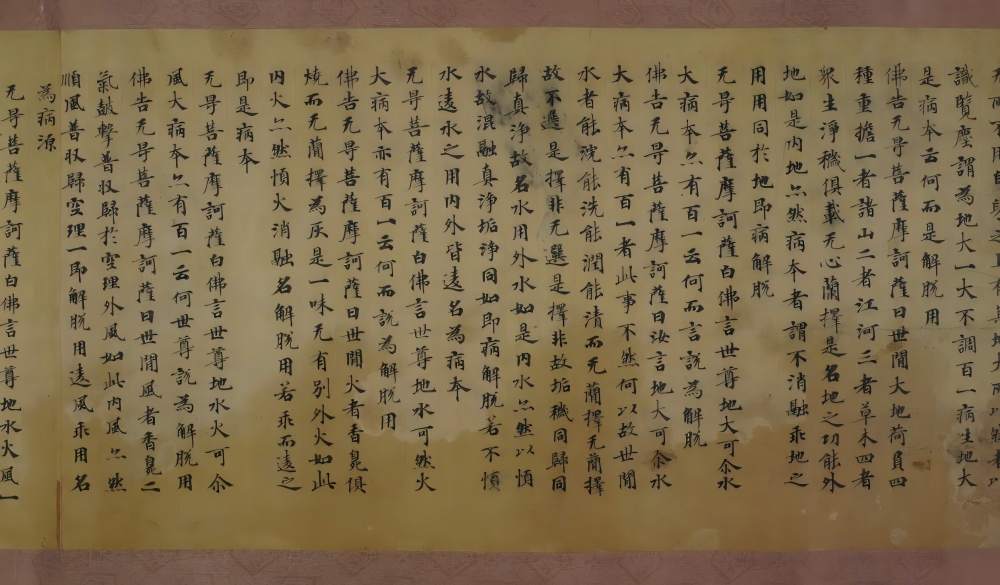 識覽塵謂為地大一大不調百一病生地大
是病本云何而是解脫用
佛告无㝵菩薩摩訶薩曰世間大地荷負四
種重擔一者諸山二者江河三者草木四者
眾生淨穢俱載无心蘭擇是名地之功能外
地如是內地亦然病本者謂不消融乖地之
用用同於地即病解脫
无㝵菩薩摩訶薩白佛言世尊地大可尒水
大病本亦有百一云何而言說為解脫
佛告无㝵菩薩摩訶薩曰汝言地大可尒水
大病本亦有百一者此事不然何以故世間
水者能浣能洗能潤能清而无蘭擇无蘭擇
故不選是擇非无選是擇非故垢穢同歸同
歸真淨故名水用外水如是內水亦然以慎
水故混融真淨垢淨同如即病解脫若不慎
水遠水之用內外皆遠名為病本
无㝵菩薩摩訶薩白佛言世尊地水可然火
大病本亦有百一云何而說為解脫用
佛告无㝵菩薩摩訶薩曰世間火者香臰俱
燒而无蘭擇為灰是一味无有別外火如此
內火亦然慎火消融名解脫用若乖而遠之
即是病本
无㝵菩薩摩訶薩白佛言世尊地水火可尒
風大病本亦有百一云何世尊說為解脫用
佛告无㝵菩薩摩訶薩曰世間風者香臰二
氣皷擊普収歸於空理外風如此內風亦然
順風普収歸空理一即解脫用遠風乖用名
為病源
无㝵菩薩摩訶薩白佛言世尊地水火風一